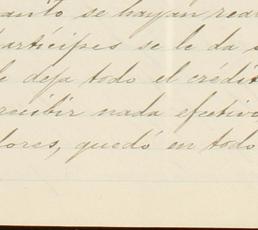 se hayan rea
partícipes se le da s
le deja todo el crédit
recibir nada efectivo
lores, quedó en todo